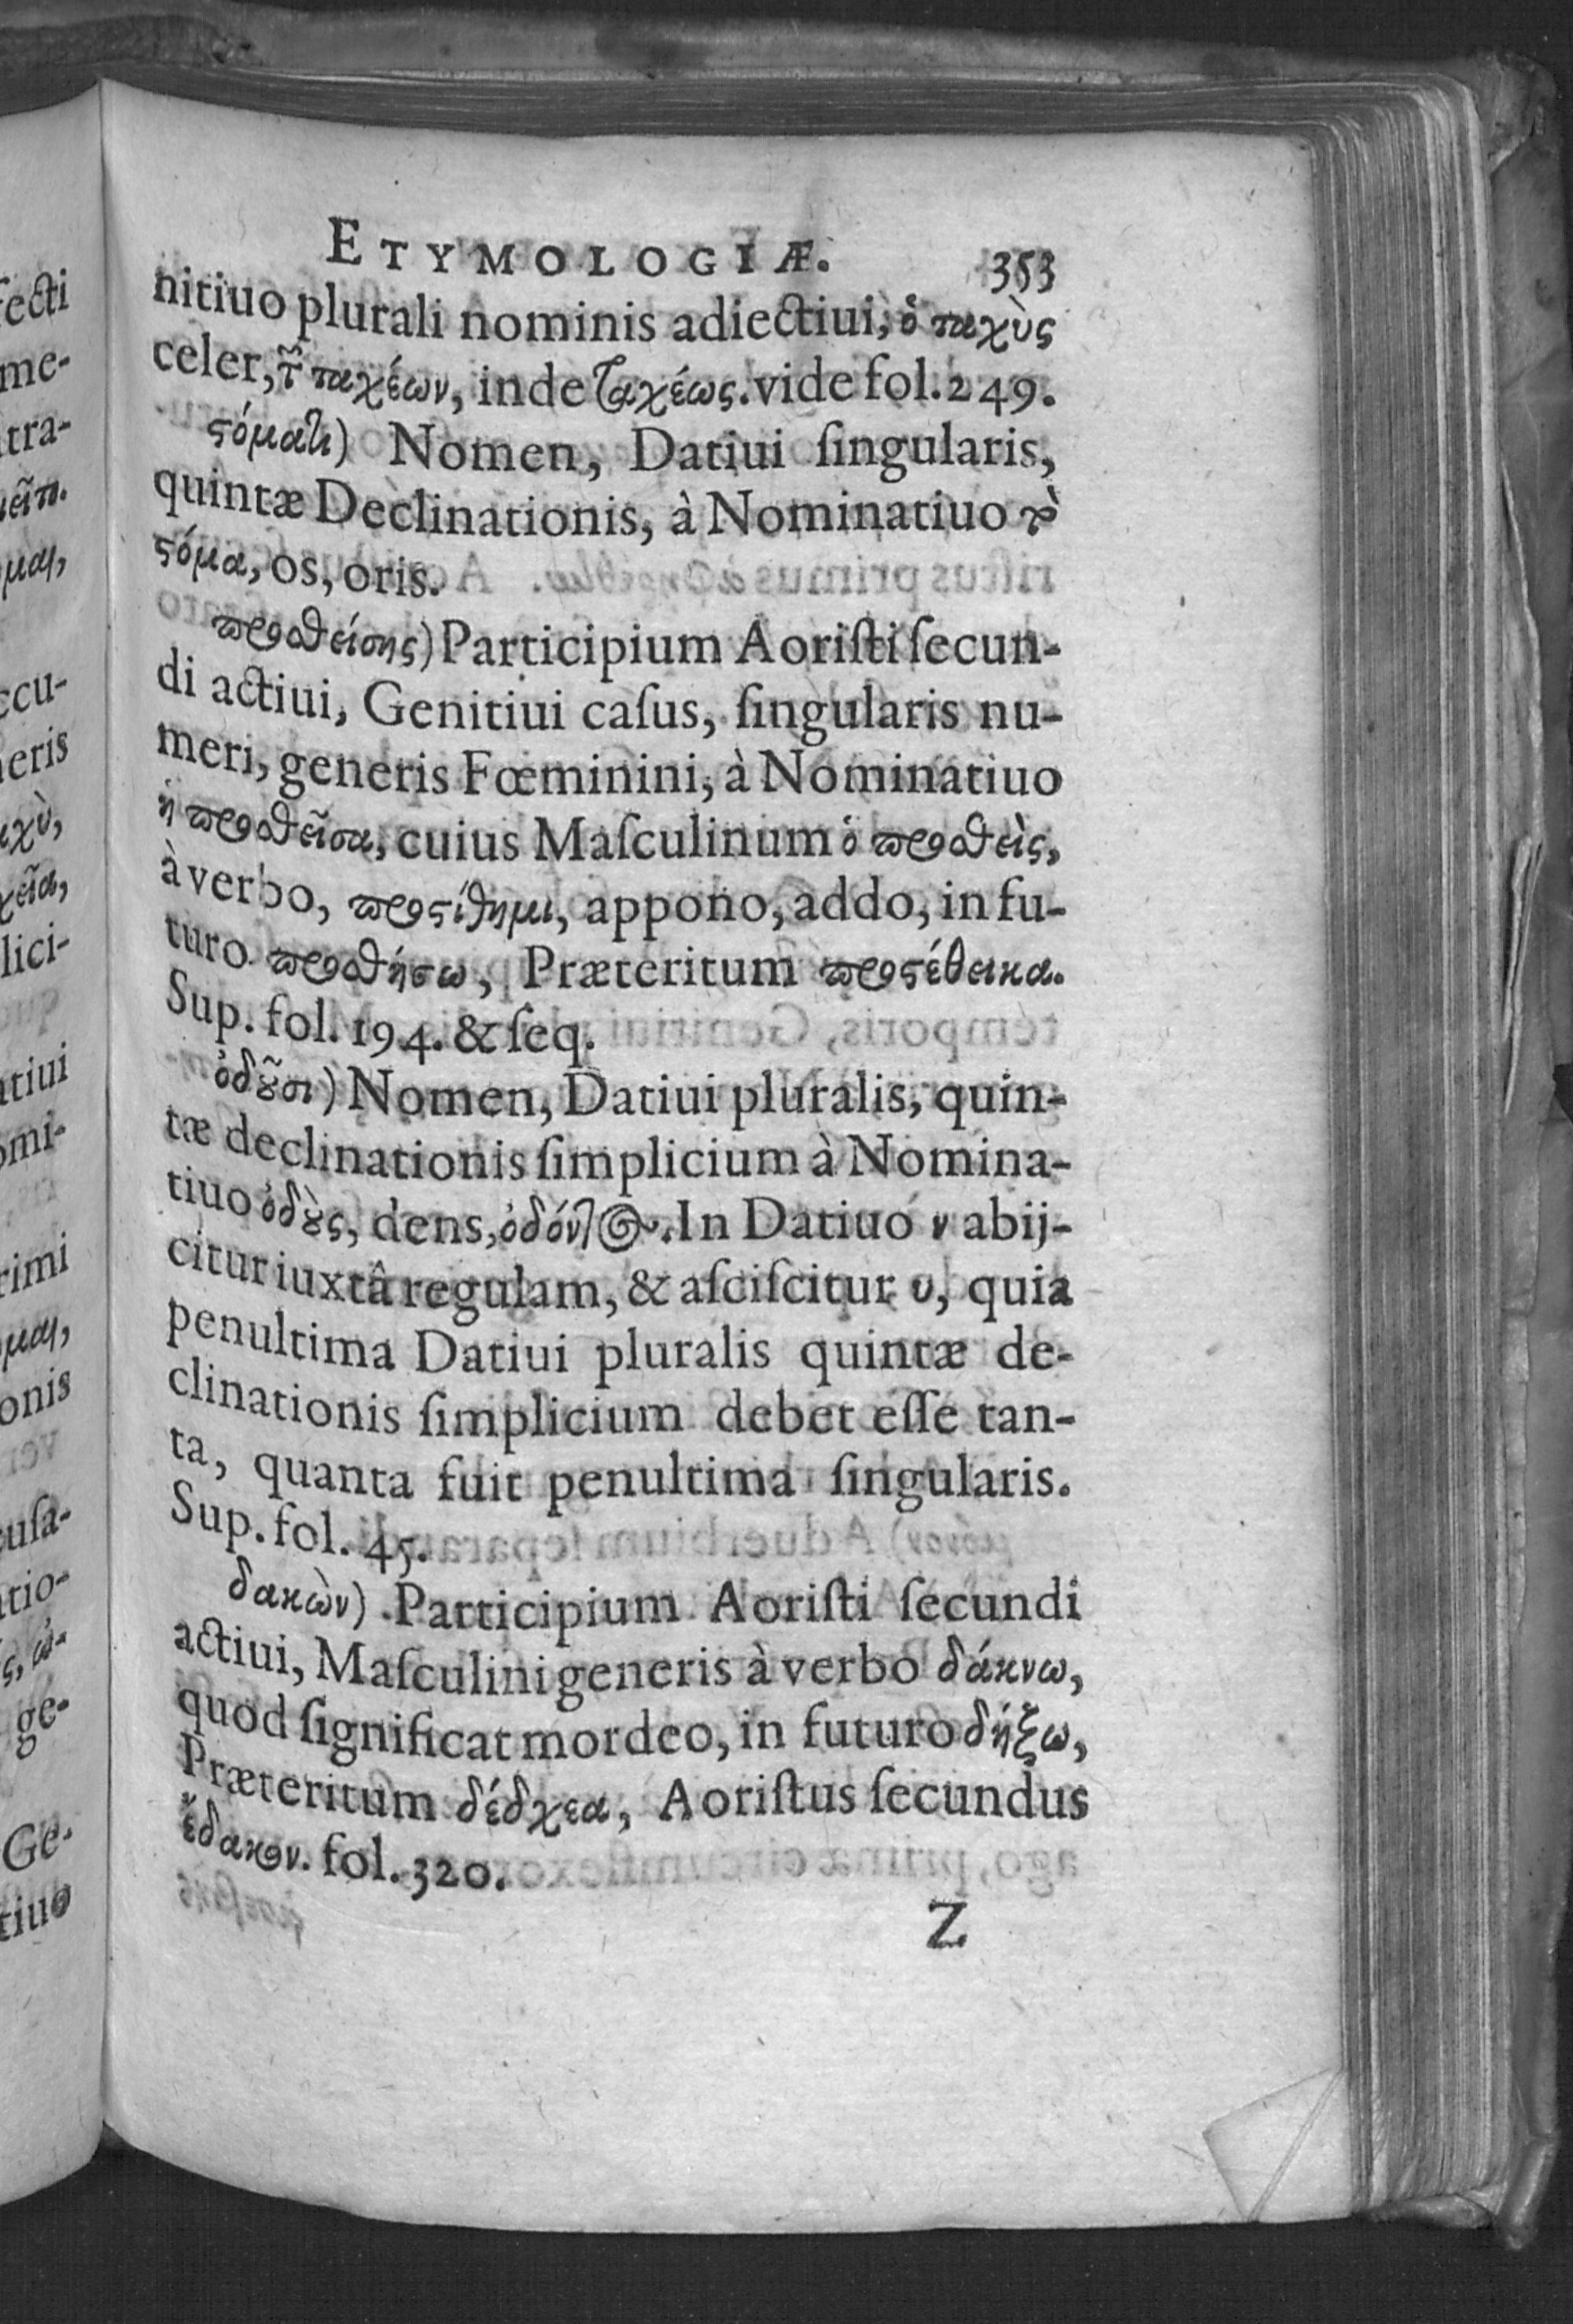 ETYMOLOGIÆ. 353
nitiuo plurali nominis adiectiui, ὁ ταχὺς
celer, τ͂ ταχέων, inde ταχέως. vide fol. 249.
ϛόματι) Nomen, Datiui ſingularis,
quintæ Declinationis, à Nominatiuo τὸ
ϛόμα, os, oris.
προσθείσης) Participium Aoriſti ſecun-
di actiui, Genitiui caſus, ſingularis nu-
meri, generis Fœminini, à Nominatiuo
ἡ προσθεῖσα, cuius Maſculinum ὁ προσθεὶς,
à verbo, προϛίθημι, appono, addo, in fu-
turo προσθήσω, Præteritum προϛέθεικα.
Sup. fol. 194. & ſeq.
ὀδȣ͂σι) Nomen, Datiui pluralis, quin-
tæ declinationis ſimplicium à Nomina-
tiuo ὀδȣ̀ς, dens, ὀδόντος. In Datiuo ν abij-
citur iuxtâ regulam, & aſciſcitur υ, quia
penultima Datiui pluralis quintæ de-
clinationis ſimplicium debet eſſe tan-
ta, quanta fuit penultima ſingularis.
Sup. fol. 45.
δακὼν) Participium Aoriſti ſecundi
actiui, Maſculini generis à verbo δάκνω,
quod ſignificat mordeo, in futuro δήξω,
Præteritum δέδχεα, Aoriſtus ſecundus
ἔδακον. fol. 320.
Z